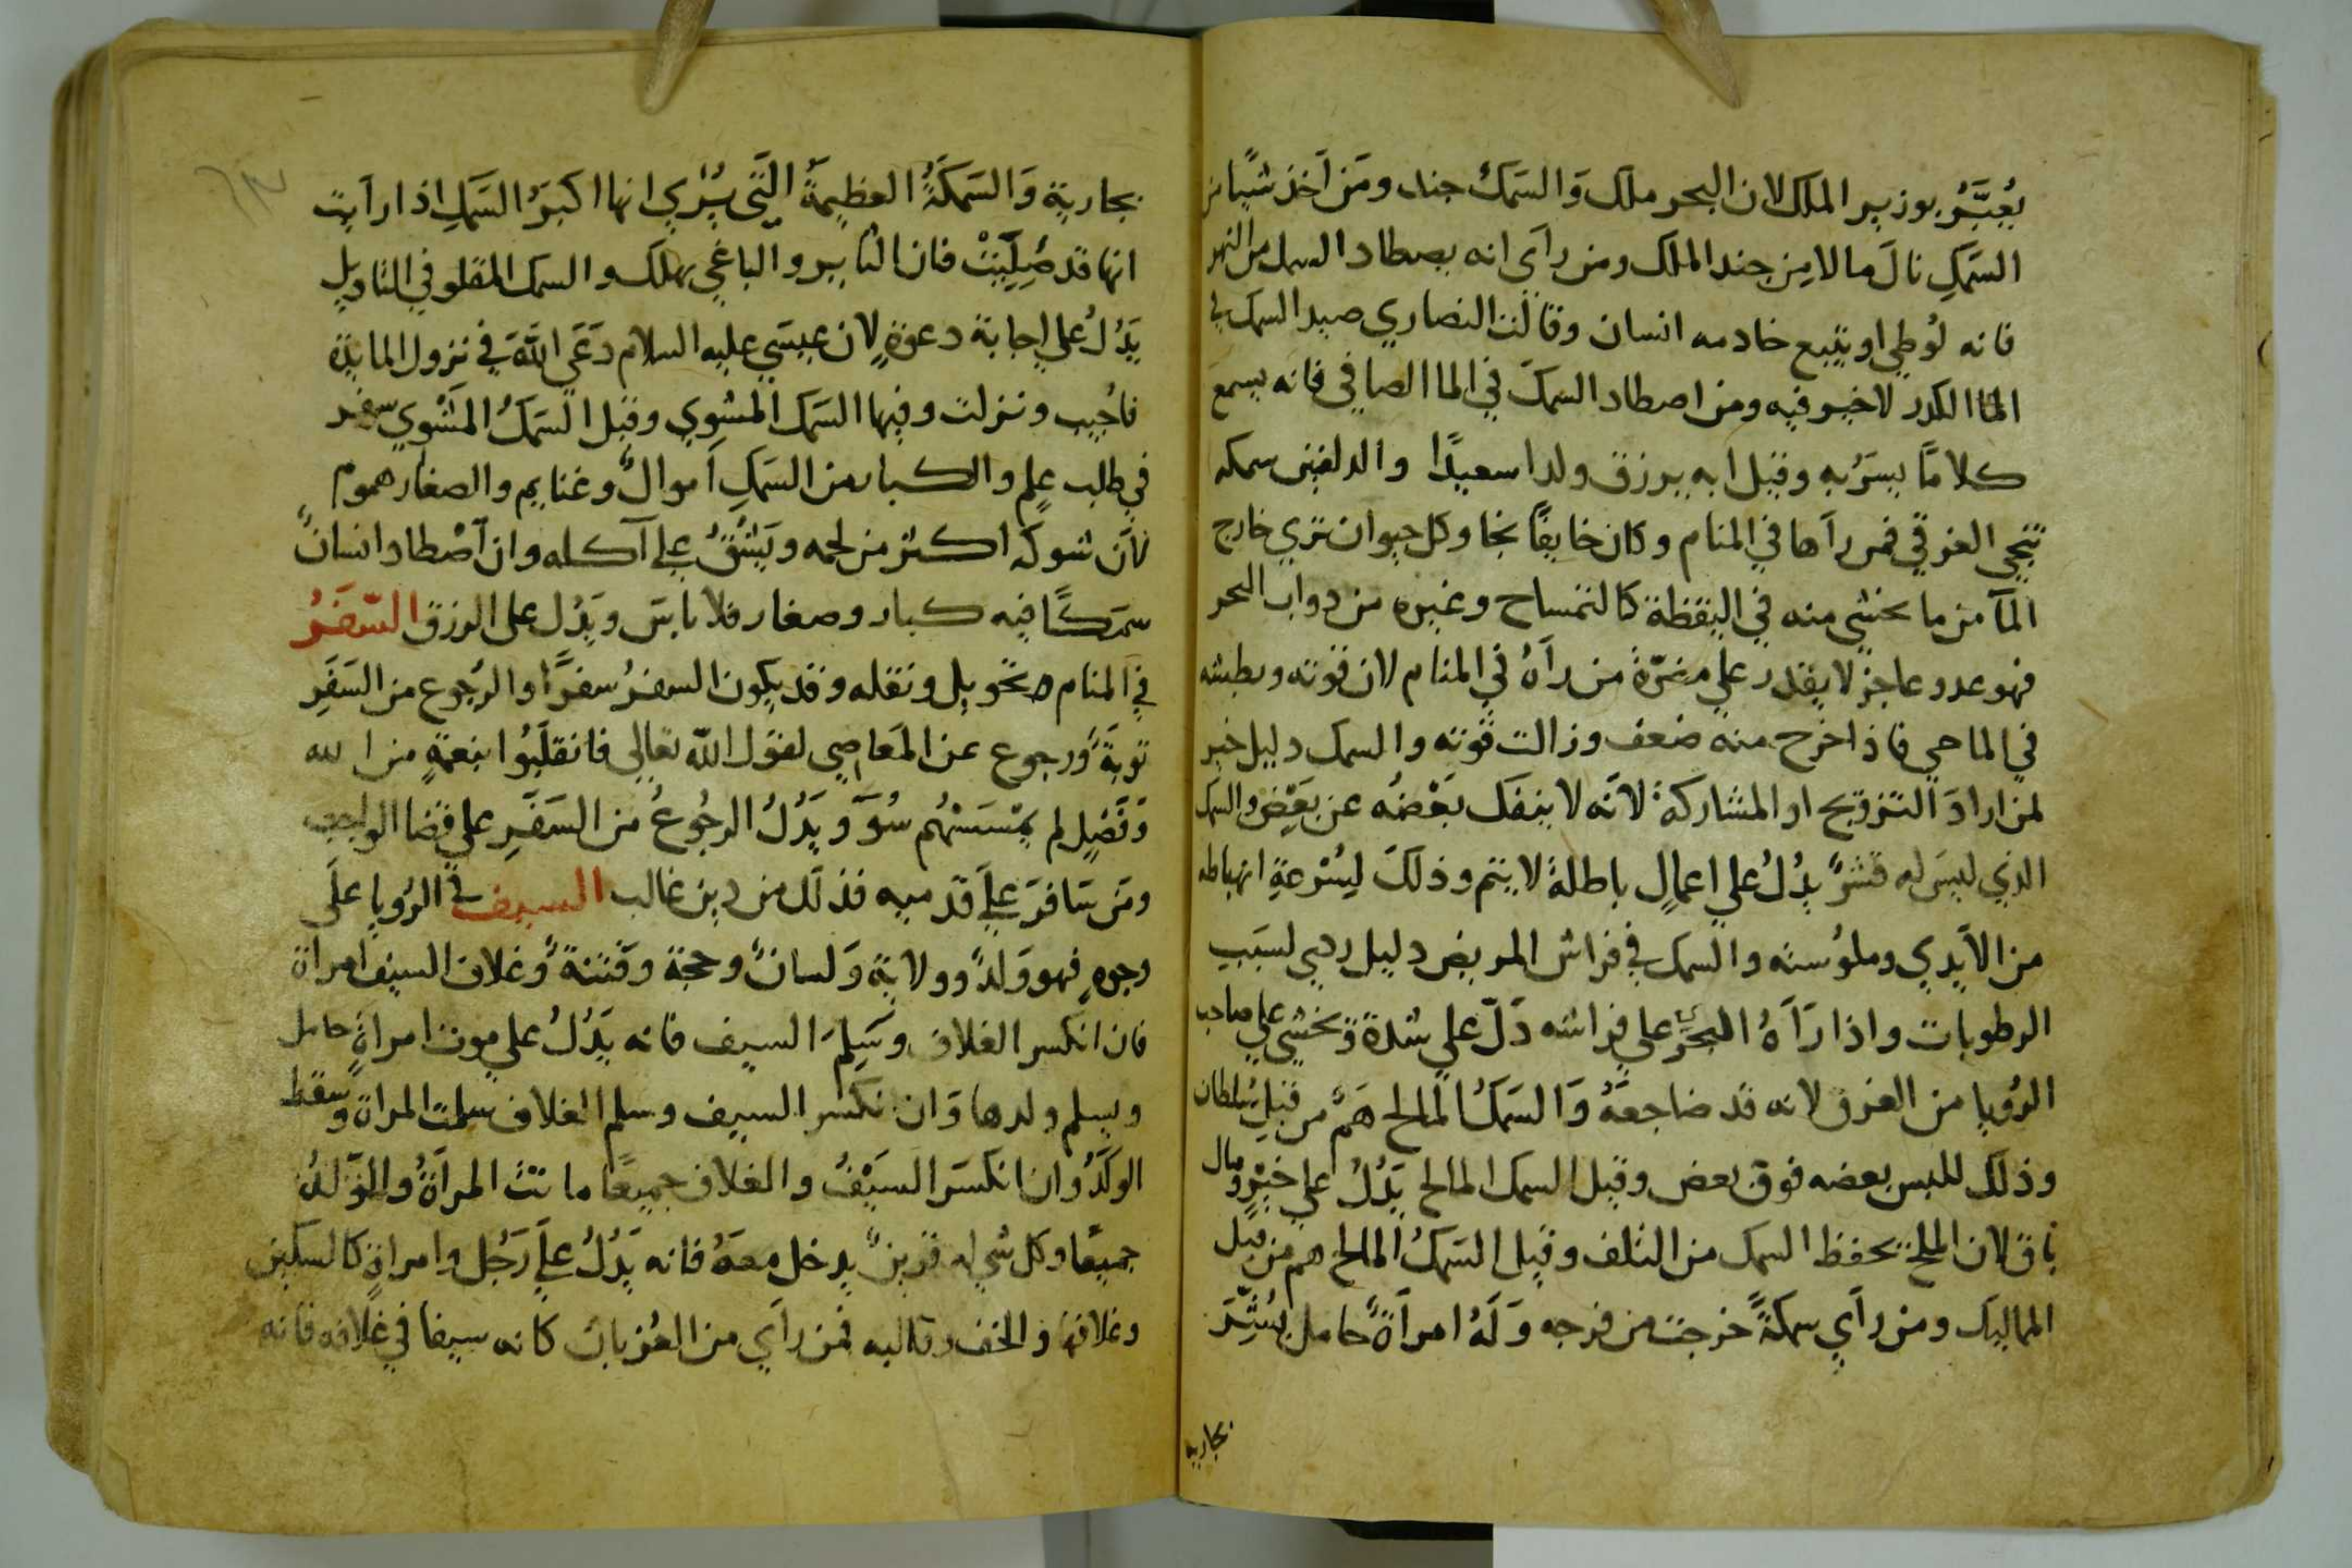 يُعبَّرُ بوزير الملك لان البحر ملك وَالسّمكُ جند ومَن اَخذ شيًا من
السّمكِ نالَ مالا مِن جند الملك ومن راَي انه يصطاد السمك من النهر
فانه لُوطي او يتبع خادمه انسان وقالَت النصاري صيد السمك في
الما الكدر لا خير فيه ومن اصطاد السمكَ في الما الصافي فانه يسمعَ
كلامًا يسرُ به وقيل انه يرزق ولدا سعيدًا والدلفين سمكه
تنجي الغرقي فمن راَها في المنام وكان خايفًا نجا وكل حيوان تري خارج
المآ من ما يخشي منه في اليقظة كالتمساح وغيره من دواب البحر
فهو عدو عاجز لا يقدر علي مضرّة من راَهُ في المنام لان قوته وبطشه
في الما هي فاذا خرج منه ضعف وزالت قوته والسمك دليل خير
لمن ارادَ التزويج او المشاركة لانّه لا ينفك بَعْضُه عن بعَضٍ والسمك
الذي ليسَ له قشرٌ يدُلُ علي اعمالٍ باطلة لا يتم وذلكَ لِسُرْعةِ انهباطه
من الاَيدي وملوُسته والسمك في فراش المريض دليل ردي لسبَبِ
الرطوبات واذا رَآهُ البحَري علي فراشه دَلّ علي شدة وَيخشي علي صاحب
الرُويا من الغرق لانه قد ضاجعَهُ وَالسّمكُ المالح هَمٌ من قبل سُلطان
وذلك للبس بعضه فوق بعض وقيل السمك المالح يَدُلُ علي خيْرٍ ومال
باق لان الملح يحفظ السمك من التلف وقيل السّمكُ المالح هم من قبل
المماليك ومن راَي سمكةً خرجت من فرجه وَلَهُ امراَةٌ حامل بُشِّرَ
بجاريه
بجارية وَالسّمكَةُ العظيمَةُ التّي يُرَي انها اكبرُ السّمكِ اذا رايت
انها قد صُلِبَتْ فان الثاير والباغي يهلك والسمك المقلو في التاويل
يَدُلُ علي اجابة دعوةٍ لان عيسَي عليه السلام دَعَي اللهَ في نزول المايدة
فاجُيب ونزلت وفيها السّمك المشوي وقيل السّمكُ المَشْوي سفر
في طلب علمٍ والكبار من السّمكِ اَموالٌ وغنايم والصغار هموم
لاَن شوكه اكثر من لحمه ويَشُقُ علي آكله وان اَصْطاد انسانٌ
سمَكًا فيه كبار وصغار فلا باسَ ويَدُل علي الرزق السّفَرُ
في المنام هو تحويل ونقله وقد يكون السفرُ سفرًا والرُجوع من السَفَرِ
توبَةً ورجوع عن المَعاصِي لقول الله تعالي فانقلَبُوا بنعمَةٍ من الله
وَفَضلٍ لم يمْسَسْهُم سُوٓ ويَدُلُ الرجُوعُ من السَفَرِ علي قضا الواجب
ومَن سَافرَ علَي قدميه فذلك من دين غالب السيف في الرُويا علَي
وجوهٍ فهو وَلدٌ وولاية وَلسانٌ وحجة وفتنةٌ وغلاف السيف امراة
فان انكسر الغلاف وسَلِمَ السيف فانه يَدُلُ علي موت امراةٍ حامل
ويسلم ولدها وَان انكسر السيف وسلم الغلاف سلمت المراة وسقط
الولَدُ وان انكسَر السيْفُ والغلاف جميعًا ماتَتْ المراَةُ والوَلَدُ
جميعًا وكل شي له قرينٌ يدخل معَهُ فانه يَدُلُ علَي رَجُل وامراةٍ كالسكين
وغلافها والخف وقالبه فمن راَي من العُزبان كانه سيفا في غلافه فانه